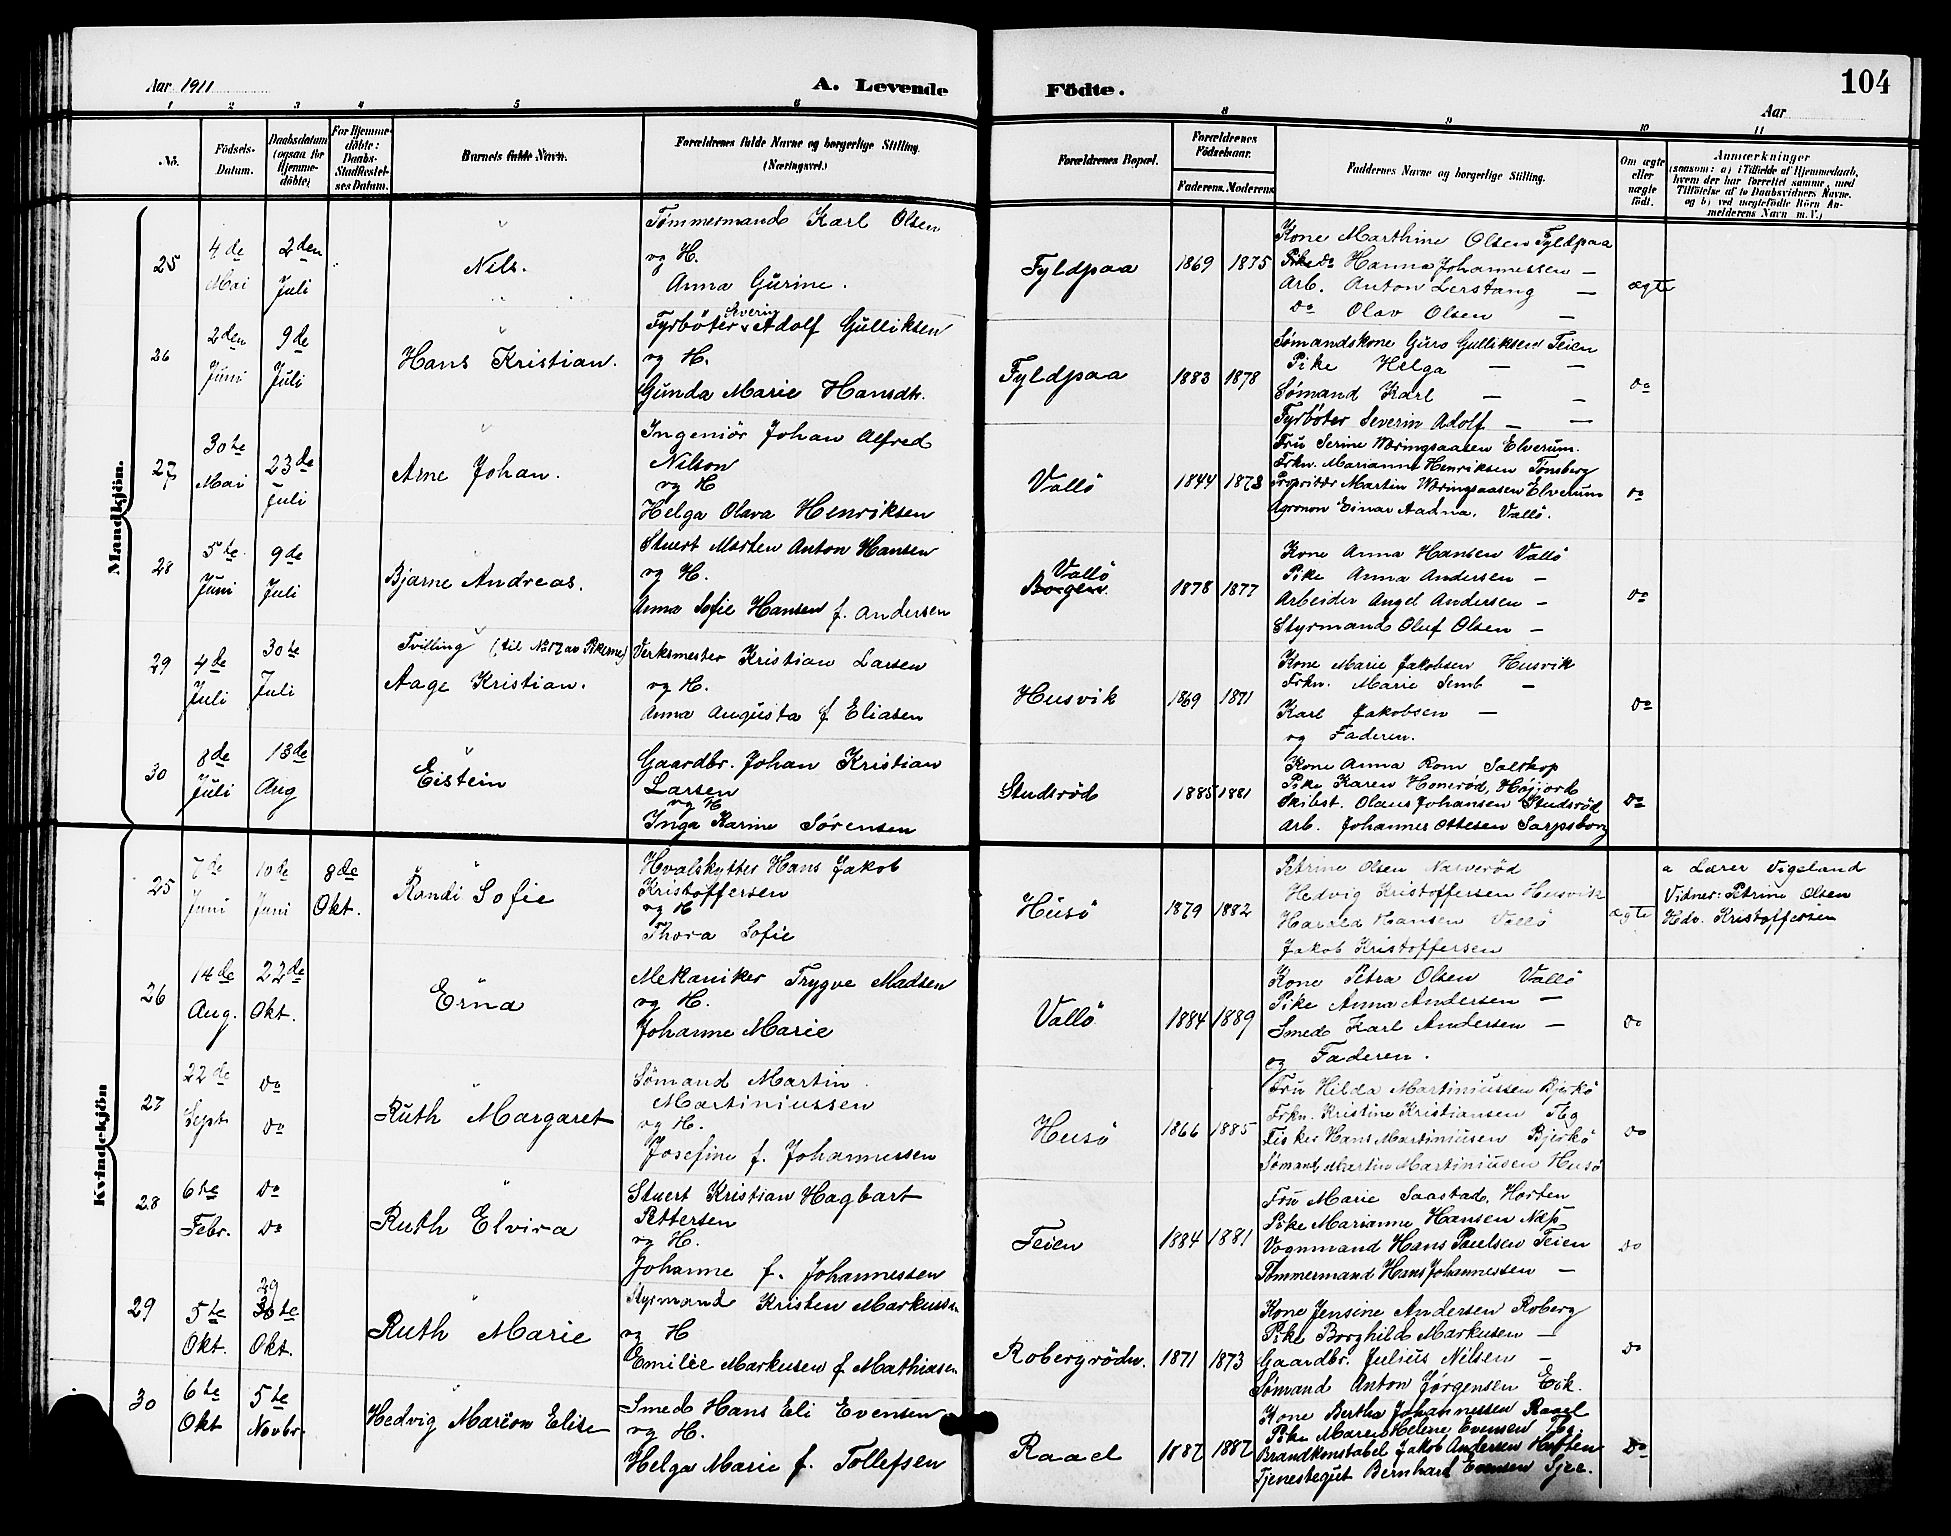 Aar 1911 A. Levende Födte. Aar 104
1 2 3 4 5 6 8 9 10 11
No.
Födsels-Datum.
Daabsdatum (ogsaa for Hjemme-döbte)
For Hjemme-döbte: Daabs-Stadfæstel-ses Datum.
Barnets fulde Navn.
Forældrenes fulde Navne og borgerlige Stilling. (Næringsvei.)
Forældrenes Bopæl.
Forældrenes Födselsaar.
Faderens. Moderens
Faddernes Navne og borgerlige Stilling.
Om ægte eller uægte födt.
Anmærkninger
(saasom: a) i Tilfælde af Hjemmedaab,
hvem der har forrettet samme, med
Tilföielse af to Daabsvidners Navne.
og b) ved uægtefödte Börn An-
melderens Navn m. V.)
Mandkjön.
25
4de Mai
2den Juli
Nils.
Tømmermand Karl Olsen
og H.
Anna Gurine.
Fyldpaa
1869 1875
Kone Marthine Olsen Fyldpaa
Pike Do Hanna Johannessen —
Arb. Anton Lerstang —
Do Olav Olsen —
ægte
26
2den Juni
9de Juli
Hans Kristian.
Fyrbøter Severin Adolf Gulliksen
og H.
Gunda Marie Hansdtr.
Fyldpaa
1883 1878
Sømandskone Guro Gulliksen Teien
Pike Helga — —
Sømand Karl — —
Fyrbøter Severin Adolf — —
Do
27
30te Mai
23de Juli
Arne Johan.
Ingeniör Johan Alfred
Nilson
og H
Helga Olava Henriksen
Vallö
1844 1873
Fru Serine Wæringsaasen Elverum.
Frkn. Marianne Henriksen Tønsberg
Propritær Martin Wæringsaasen Elverum
Agronom Einar Aanna. Vallö.
Do
28
5te Juni
9de Juli
Bjarne Andreas.
Stuert Morten Anton Hansen
og H.
Anna Sofie Hansen f. Andersen
Vallö
Borgen
1878 1877
Kone Anna Hansen Vallö
Pike Anna Andersen —
Arbeider Angel Andersen —
Styrmand Oluf Olsen —
Do
29
4de Juli
30te Juli
Tvilling (til No 17 av Pikerne)
Aage Kristian.
Verksmester Kristian Larsen
og H.
Anna Augusta f Eliasen
Husvik
1869 1871
Kone Marie Jakobsen Husvik
Frkn. Marie Semb —
Karl Jakobsen —
og Faderen.
Do
30
8de Juli
13de Aug
Eistein
Gaardbr. Johan Kristian
Larsen
og H
Inga Karine Sørensen
Studsrød
1885 1881
Kone Anna Rom Saltkop
Pike Karen Honerød, Høijord
Skibst. Olaus Johansen Studsrød
Arb. Johannes Ottesen Sarpsborg
Do
Kvindekjön
25
7de Juni
10de Juni
8de Okt.
Randi Sofie
Hvalskytter Hans Jakob
Kristoffersen
og H
Thora Sofie
Husö
1879 1882
Petrine Olsen Narverød
Hedvig Kristoffersen Husvik
Harald Hansen Vallö
Jakob Kristoffersen
ægte
a Lærer Vigeland
Vidner: Petrine Olsen
Hedv. Kristoffersen
26
14de Aug.
22de Okt.
Erna
Mekaniker Trygve Madsen
og H.
Johanne Marie
Vallö
1884 1889
Kone Petra Olsen Vallö
Pike Anna Andersen —
Smed Karl Andersen —
og Faderen.
Do
27
22de Sept
Do Do
Ruth Margaret
Sømand Martin
Martiniussen
og H.
Josefine f. Johannessen
Husö
1866 1885
Fru Hilda Martiniussen Bjerkö
Frkn. Kristine Kristiansen Tbg
Fisker Hans Martiniusen Bjerkö
Sømand Martin Martiniusen Husö
Do
28
6te Febr.
Do Do
Ruth Elvira
Stuert Kristian Hagbart
Pettersen
og H.
Johanne f. Johannessen
Teien
1884 1881
Fru Marie Saastad, Horten
Pike Marianne Hansen Næs
Vognmand Hans Paulsen Teien
Tømmermand Hans Johannessen —
Do
29
5te Okt.
29
30te Okt.
Ruth Marie
Styrmand Kristen Markussen
og H
Emilie Markusen f Mathiasen
Robergrödn.
1871 1873
Kone Jensine Andersen Roberg
Pike Borghild Markusen —
Gaardbr. Julius Nilsen —
Sømand Anton Jørgensen Eik.
Do
30
6te Okt
5te Novbr.
Hedvig Marion Elise
Smed Hans Eli Evensen
og H.
Helga Marie f. Tollefsen
Raael
1882 1882
Kone Bertha Johannessen Raael
Pike Maren Helene Evensen
Brandkonstabel Jakob Andersen Horten
Tjenestegut Bernhard Evensen
Do